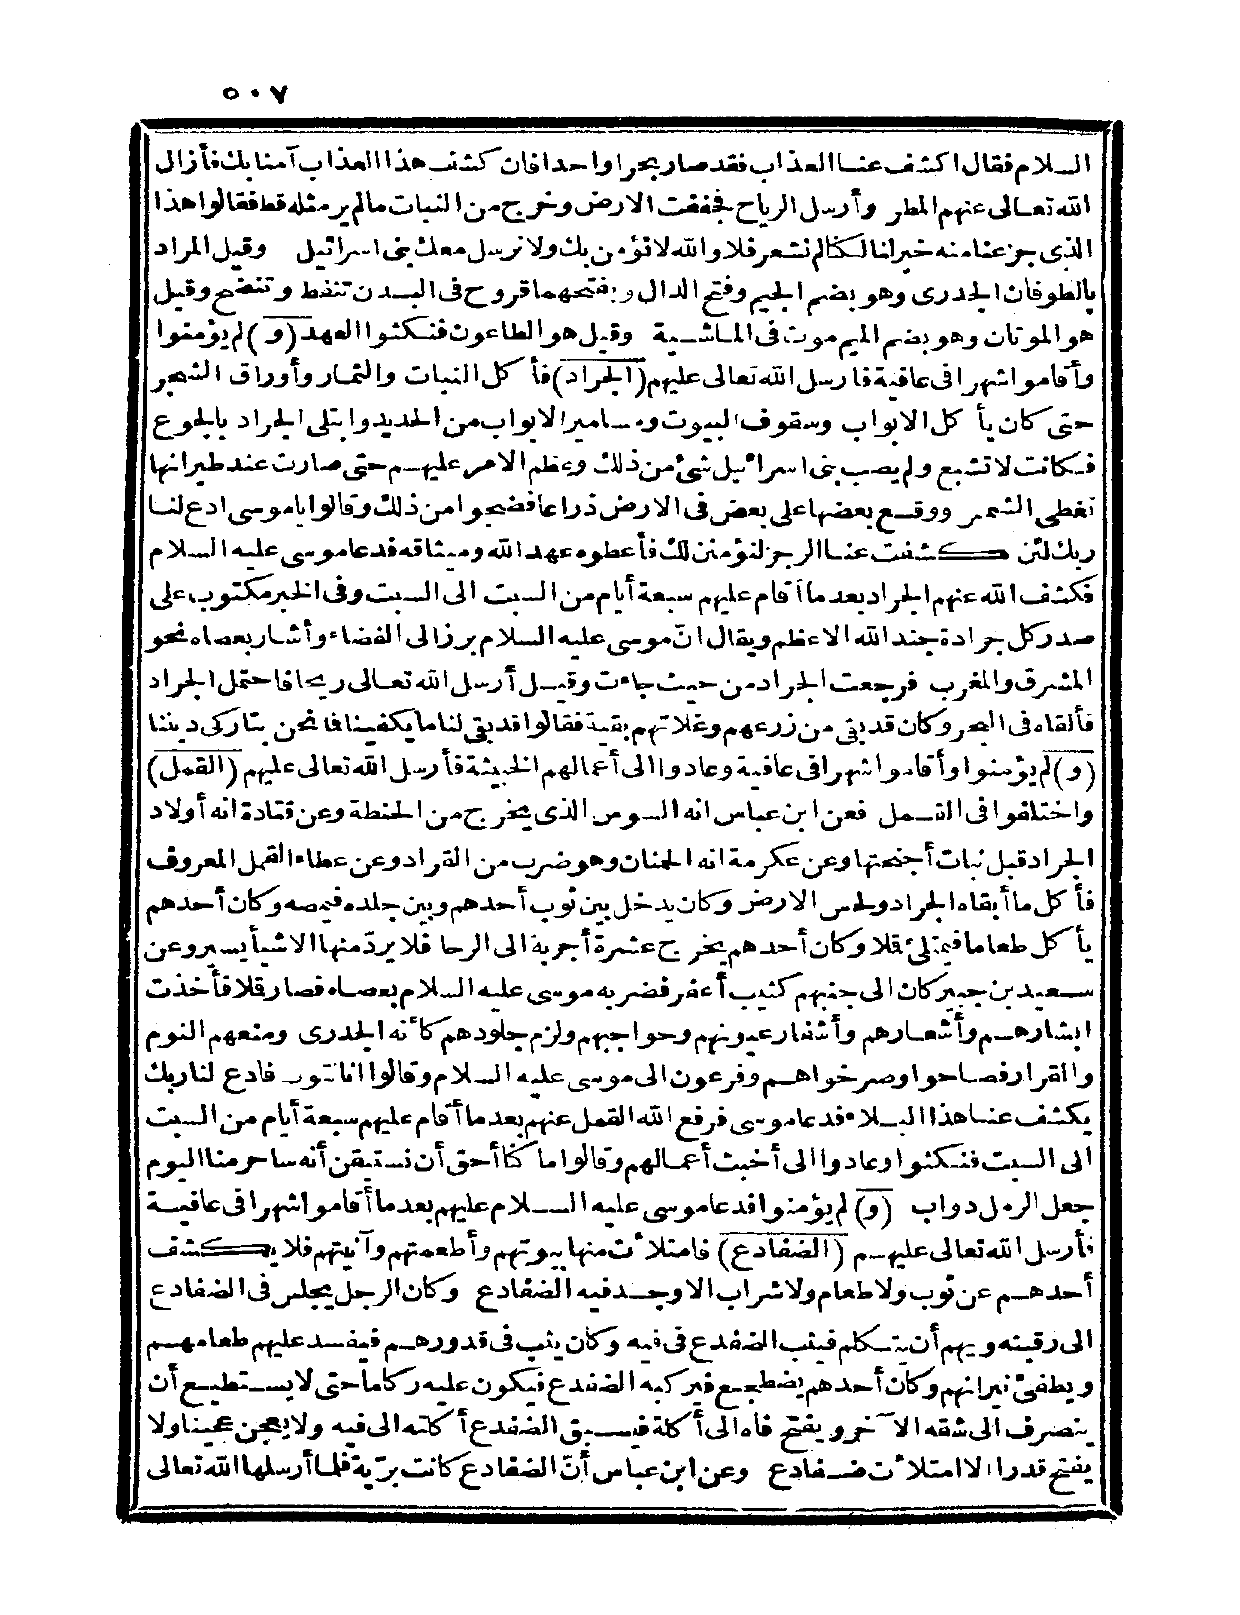 ٥٠٧
السلام فقال اكشف عنا العذاب فقد صار بحرا واحدا فان كشف هذا العذاب آمنا بك فأزال
الله تعالى عنهم المطر وأرسل الرياح فجففت الارض وخرج من النبات مالم ير مثله قط فقالوا هذا
الذى جزعنا منه خير لنا لكنا لم نشعر فلا والله لا نؤمن بك ولا نرسل معك بنى اسرائيل وقيل المراد
بالطوفان الجدرى وهو بضم الجيم وفتح الدال وبفتحهما قروح فى البدن تنفط وتنضح وقيل
هو الموتان وهو بضم الميم موت فى الماشية وقيل هو الطاعون فنكثوا العهد (و) لم يؤمنوا
وأقاموا شهرا فى عافية فارسل الله تعالى عليهم (الجراد) فأكل النبات والثمار وأوراق الشجر
حتى كان يأكل الابواب وسقوف البيوت ومسامير الابواب من الحديد وابتلى الجراد بالجوع
فكانت لا تشبع ولم يصب بنى اسرائيل شئ من ذلك وعظم الامر عليهم حتى صارت عند طيرانها
تغطى الشمس ووقع بعضها على بعض فى الارض ذراعا فضجوا من ذلك وقالوا ياموسى ادع لنا
ربك لئن كشفت عنا الرجز لنؤمنن لك فأعطوه عهد الله وميثاقه فدعا موسى عليه السلام
فكشف الله عنهم الجراد بعد ما أقام عليهم سبعة أيام من السبت الى السبت وفى الخبر مكتوب على
صدر كل جرادة جند الله الاعظم ويقال انّ موسى عليه السلام برز الى الفضاء وأشار بعصاه نحو
المشرق والمغرب فرجعت الجراد من حيث جاءت وقيل أرسل الله تعالى ريحا فاحتمل الجراد
فألقاه فى البحر وكان قد بقى من زرعهم وغلاتهم بقية فقالوا قد بقى لنا ما يكفينا فا نحن بتاركى ديننا
(و) لم يؤمنوا وأقاموا شهرا فى عافية وعادوا الى أعمالهم الخبيثة فأرسل الله تعالى عليهم (القمل)
واختلفوا فى القمل فعن ابن عباس انه السوس الذى يخرج من الحنطة وعن قتادة انه أولاد
الجراد قبل نبات أجنحتها وعن عكرمة انه الحمنان وهو ضرب من القراد وعن عطاء القمل المعروف
فأكل ما أبقاه الجراد ولحس الارض وكان يدخل بين ثوب أحدهم وبين جلده فيمصه وكان أحدهم
يأكل طعاما فيمتلئ قلا وكان أحدهم يخرج عشرة أجربة الى الرحا فلا يردّ منها الا شيأ يسير وعن
سعيد بن جبير كان الى جنبهم كثيب أعفر فضربه موسى عليه السلام بعصاه فصار قلا فأخذت
ابشارهم وأشعارهم وأشفار عيونهم وحواجبهم ولزم جلودهم كأنه الجدرى ومنعهم النوم
والقرار فصاحوا وصرخوا هم وفرعون الى موسى عليه السلام وقالوا انا نتوب فادع لنا ربك
يكشف عنا هذا البلاء فدعا موسى فرفع الله القمل عنهم بعد ما أقام عليهم سبعة أيام من السبت
الى السبت فنكثوا وعادوا الى أخبث أعمالهم وقالوا ما كنا أحق أن نستيقن أنه ساحر منا اليوم
جعل الرمل دواب (و) لم يؤمنوا فدعا موسى عليه السلام عليهم بعد ما أقاموا شهرا فى عافية
فأرسل الله تعالى عليهم (الضفادع) فامتلأت منها بيوتهم وأطعمتهم وآنيتهم فلا يكشف
أحدهم عن ثوب ولا طعام ولا شراب الا وجد فيه الضفادع وكان الرجل يجلس فى الضفادع
الى رقبته ويهم أن يتكلم فيثب الضفدع فى فيه وكان يثب فى قدورهم فيفسد عليهم طعامهم
ويطفئ نيرانهم وكان أحدهم يضطجع فيركبه الضفدع فيكون عليه ركاما حتى لا يستطيع أن
ينصرف الى شقه الآخر ويفتح فاه الى أكلة فيسبق الضفدع أكلته الى فيه ولا يعجن عجينا ولا
يفتح قدرا الا امتلأت ضفادع وعن ابن عباس أنّ الضفادع كانت برّية فلما أرسلها الله تعالى